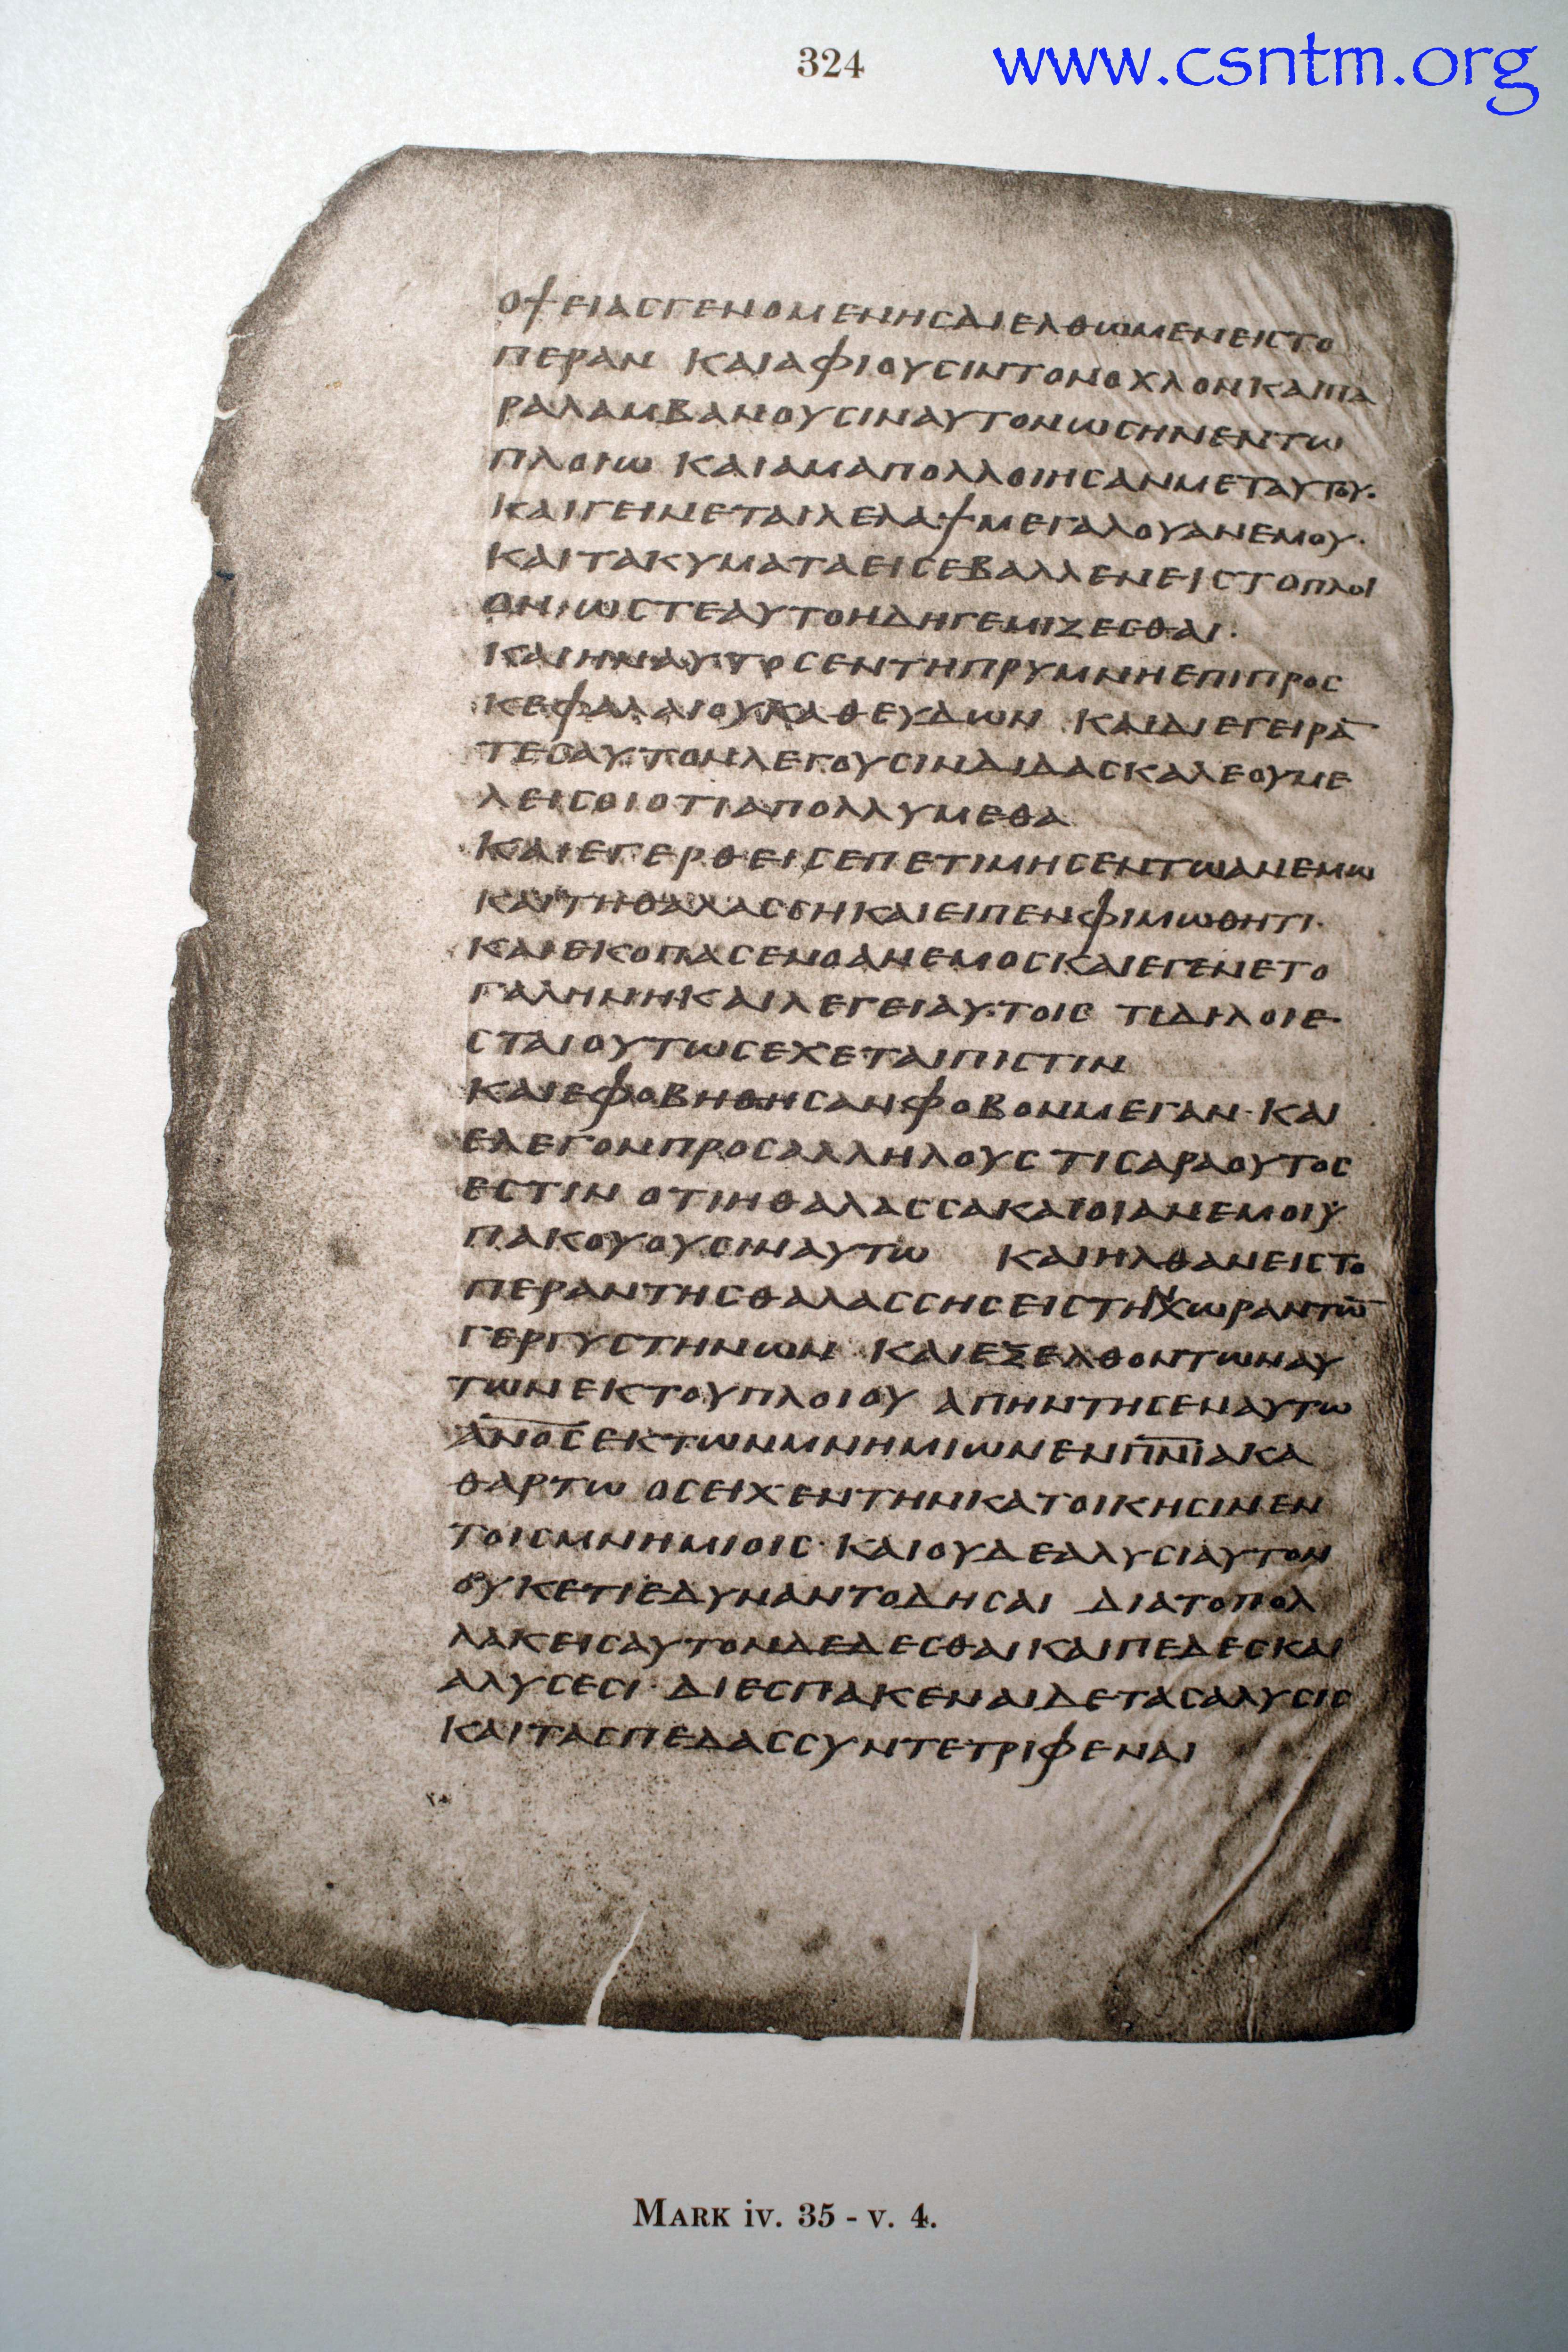 324
www.csntm.org
ΟΨΕΙΑСΓΕΝΟΜΕΝΗСΔΙΕΛΘωΜΕΝΕΙСΤΟ
ΠΕΡΑΝ ΚΑΙΑΦΙΟΥСΙΝΤΟΝΟΧΛΟΝΚΑΙΠΑ
ΡΑΛΑΜΒΑΝΟΥСΙΝΑΥΤΟΝωСΗΝΕΝΤω
ΠΛΟΙω ΚΑΙΑΜΑΠΟΛΛΟΙΗСΑΝΜΕΤΑΥΤΟΥ·
ΚΑΙΓΕΙΝΕΤΑΙΛΕΛΑΨΜΕΓΑΛΟΥΑΝΕΜΟΥ·
ΚΑΙΤΑΚΥΜΑΤΑΕΙСΕΒΑΛΛΕΝΕΙСΤΟΠΛΟΙ
ΟΝ·ωСΤΕΑΥΤΟΗΔΗΓΕΜΙΖΕСΘΑΙ·
ΚΑΙΗΝΑΥΤΟСΕΝΤΗΠΡΥΜΝΗΕΠΙΠΡΟС
ΚΕΦΑΛΑΙΟΥΚΑΘΕΥΔωΝ ΚΑΙΔΙΕΓΕΙΡΑ̅
ΤΕСΑΥΤΟΝΛΕΓΟΥСΙΝΔΙΔΑСΚΑΛΕΟΥΜΕ
ΛΕΙСΟΙΟΤΙΑΠΟΛΛΥΜΕΘΑ
ΚΑΙΕΓΕΡΘΕΙСΕΠΕΤΙΜΗСΕΝΤωΑΝΕΜω
ΚΑΙΤΗΘΑΛΑССΗΚΑΙΕΙΠΕΝΦΙΜωΘΗΤΙ·
ΚΑΙΕΚΟΠΑСΕΝΟΑΝΕΜΟСΚΑΙΕΓΕΝΕΤΟ
ΓΑΛΗΝΗΚΑΙΛΕΓΕΙΑΥΤΟΙС ΤΙΔΙΛΟΙΕ
СΤΑΙΟΥΤωСΕΧΕΤΑΙΠΙСΤΙΝ
ΚΑΙΕΦΟΒΗΘΗСΑΝΦΟΒΟΝΜΕΓΑΝ·ΚΑΙ
ΕΛΕΓΟΝΠΡΟСΑΛΛΗΛΟΥС ΤΙСΑΡΑΟΥΤΟС
ΕСΤΙΝ ΟΤΙΗΘΑΛΑССΑΚΑΙΟΙΑΝΕΜΟΙΥ
ΠΑΚΟΥΟΥСΙΝΑΥΤω ΚΑΙΗΛΘΑΝΕΙСΤΟ
ΠΕΡΑΝΤΗСΘΑΛΑССΗСΕΙСΤΗΝΧωΡΑΝΤω̅
ΓΕΡΓΥСΤΗΝωΝ ΚΑΙΕΞΕΛΘΟΝΤωΝΑΥ
ΤωΝΕΚΤΟΥΠΛΟΙΟΥ ΑΠΗΝΤΗСΕΝΑΥΤω
Α̅Ν̅Ο̅С̅ΕΚΤωΝΜΝΗΜΙωΝΕΝΠ̅Ν̅Ι̅ΑΚΑ
ΘΑΡΤω ΟСΕΙΧΕΝΤΗΝΚΑΤΟΙΚΗСΙΝΕΝ
ΤΟΙСΜΝΗΜΙΟΙС·ΚΑΙΟΥΔΕΑΛΥСΙΑΥΤΟΝ
ΟΥΚΕΤΙΕΔΥΝΑΝΤΟΔΗСΑΙ ΔΙΑΤΟΠΟΛ
ΛΑΚΕΙСΑΥΤΟΝΔΕΔΕСΘΑΙΚΑΙΠΕΔΕСΚΑΙ
ΑΛΥСΕСΙ·ΔΙΕСΠΑΚΕΝΑΙΔΕΤΑСΑΛΥСΙС
ΚΑΙΤΑСΠΕΔΑССΥΝΤΕΤΡΙΦΕΝΑΙ
MARK iv. 35 - v. 4.